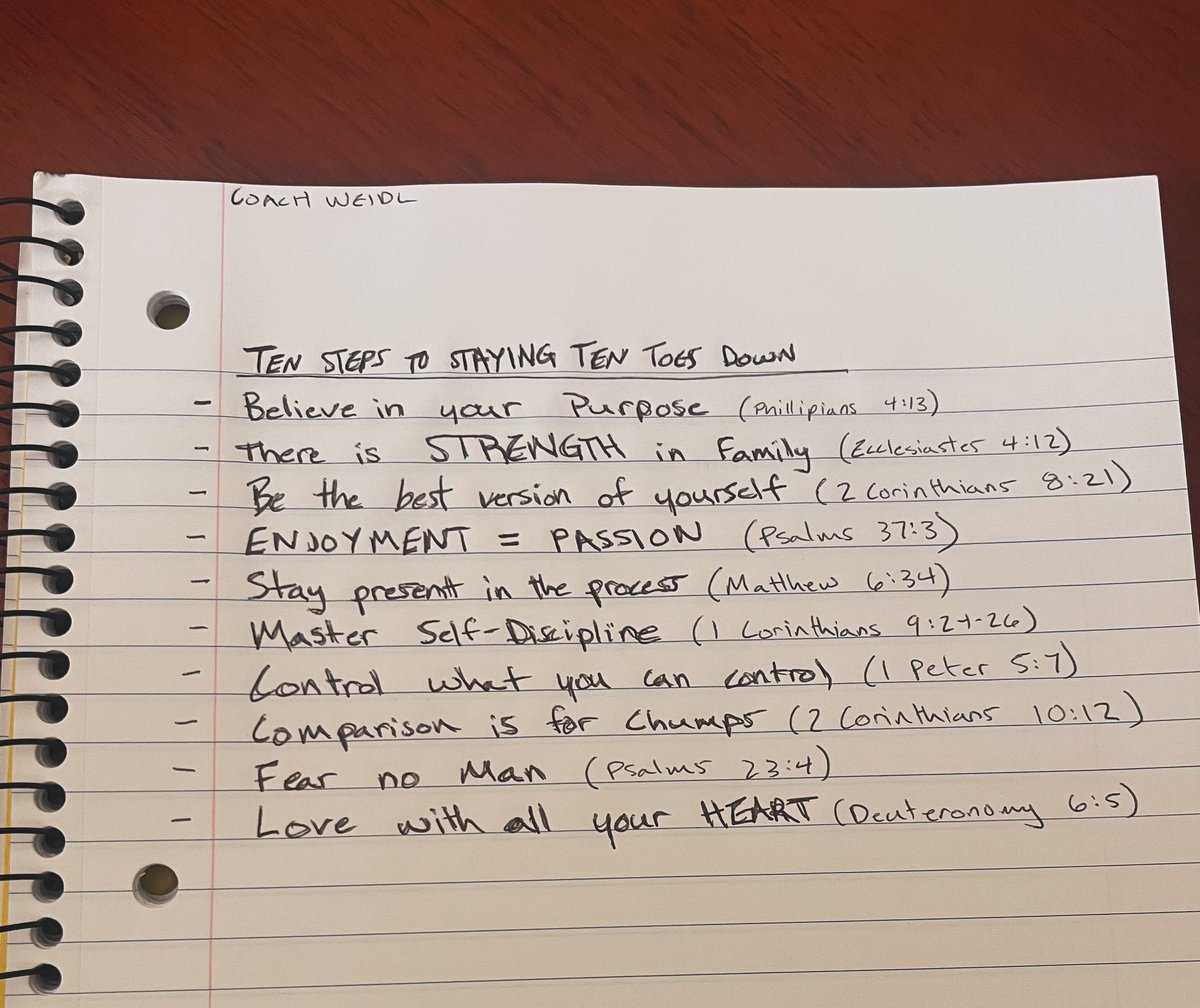 COACH WEIDL
TEN STEPS TO STAYING TEN TOES DOWN
- Believe in your Purpose (Phillipians 4:13)
- there is STRENGTH in Family (Ecclesiastes 4:12)
- Be the best version of yourself (2 Corinthians 8:21)
- ENJOYMENT = PASSION (Psalms 37:3)
- Stay present in the process (Matthew 6:34)
- Master Self-Discipline (1 Corinthians 9:24-26)
- Control what you can control (1 Peter 5:7)
- Comparison is for Chumps (2 Corinthians 10:12)
- Fear no Man (Psalms 23:4)
- Love with all your HEART (Deuteronomy 6:5)